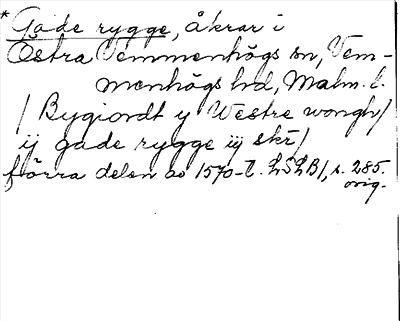 * Gade rygge, åkrar i
Östra Vemmenhögs sn, Vem-
menhögs hd, Malm. l.
/ Bygiordt y Westre wongh/
ij gade rygge iij skr/
förra delen av 1570-t. LSLB/, s. 285.
orig.